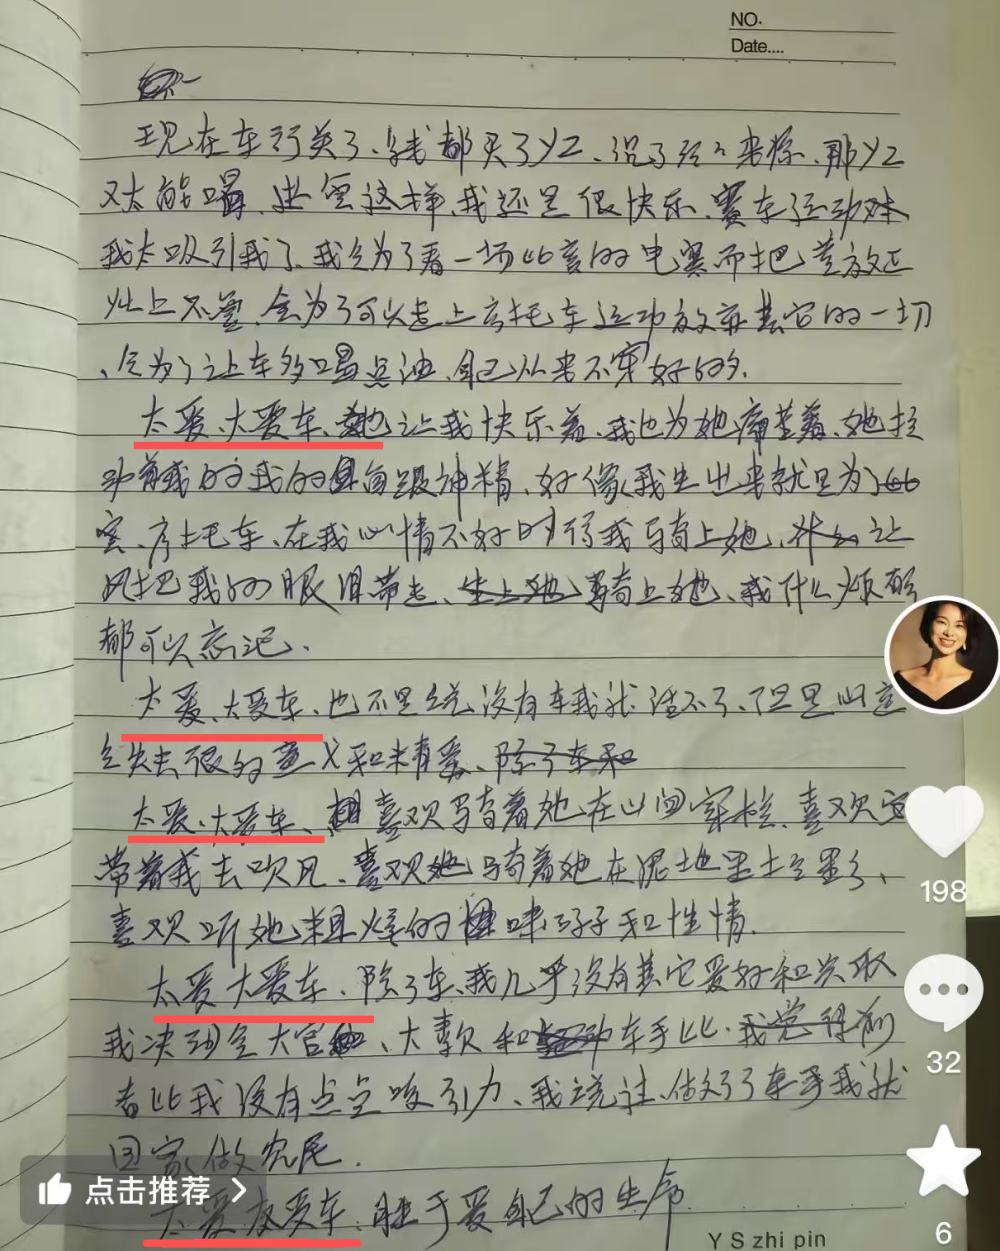 NO.
Date....
现在车行关了、钱都买了YZ、说了经々来源、那YZ
又太能喝、业宽这样、我还是很快乐、赛车运动对本
我太吸引我了、我会为了看一场比赛的电视而把菜放在
灶上不管、会为了可以走上摩托车运动放弃其它的一切
、会为了让车多喝点油、自己从来不穿好的。
太爱、太爱车、她让我快乐着、我也为她痛苦着、她拉
动着我的每根神精、好像我生出来就是为了比
赛、摩托车、在我心情不好时候我骑上她、让
风把我的眼泪带走、骑上她、我什么烦恼
都可以忘记、
太爱、太爱车、也不是说没有车我就活不了、但是
会失去很的意义和精彩、除了车和
太爱、太爱车、喜欢骑着她在山间穿梭、喜欢它
带着我去吹风、喜欢骑着她在泥地里
喜欢听她粗燥的嗓子和性情、
太爱太爱车、除了车、我几乎没有其它爱好和兴取
我决到会大官、大款和车手比、我觉得前
者比我没有点点吸引力、我说过、做不了车手我就
回家做农民、
太爱太爱车、胜于爱自己的生命
198
32
6
点击推荐
Y S zhi pin